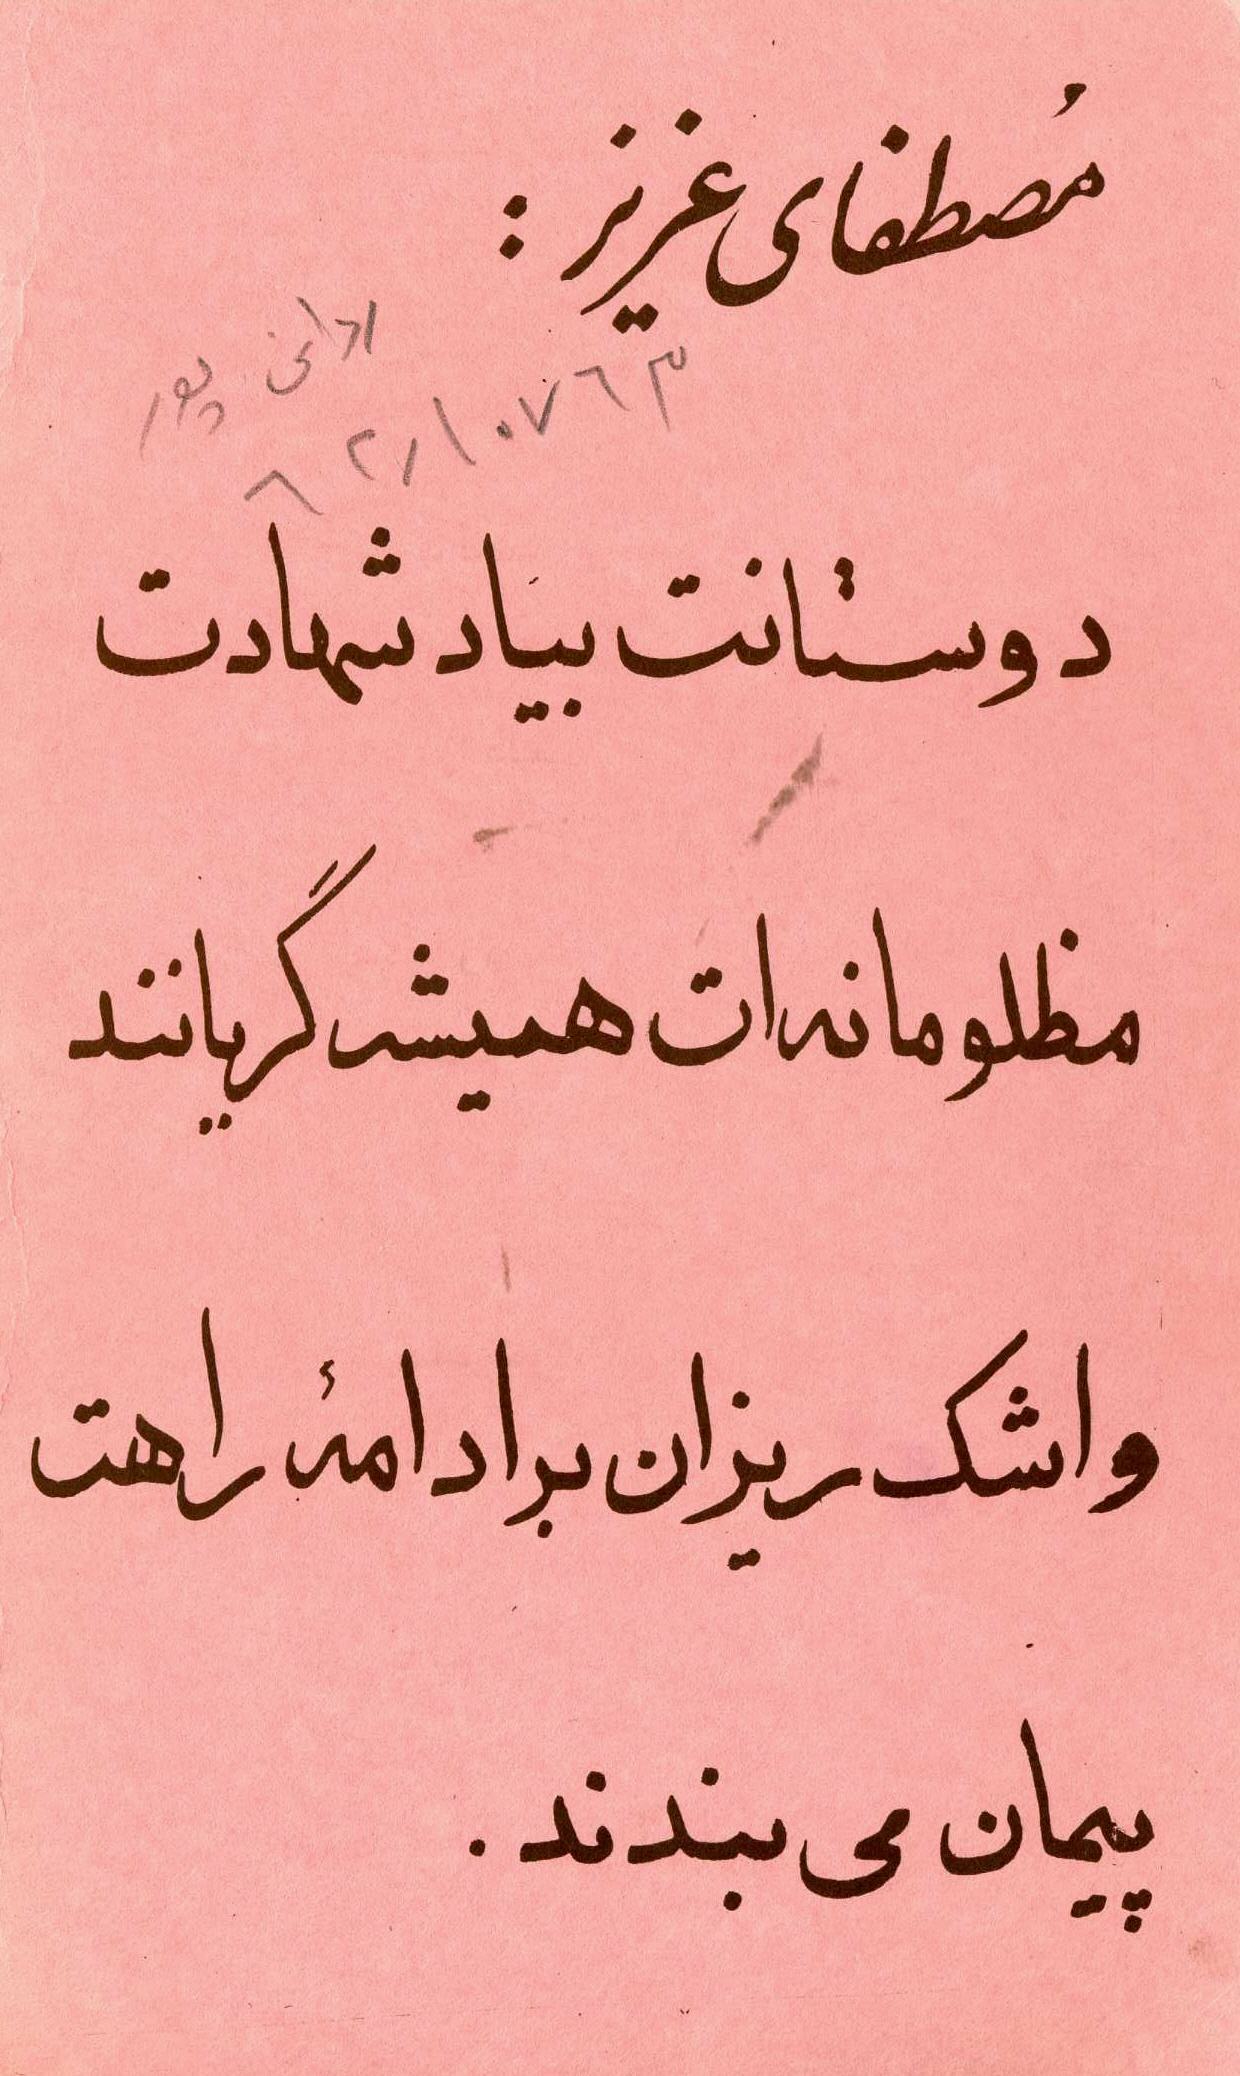 مُصطفای عزیز :
دوستانت بیاد شهادت
مظلومانه‌ات همیشه گریانند
و اشک ریزان بر ادامهٔ راهت
پیمان می بندند .